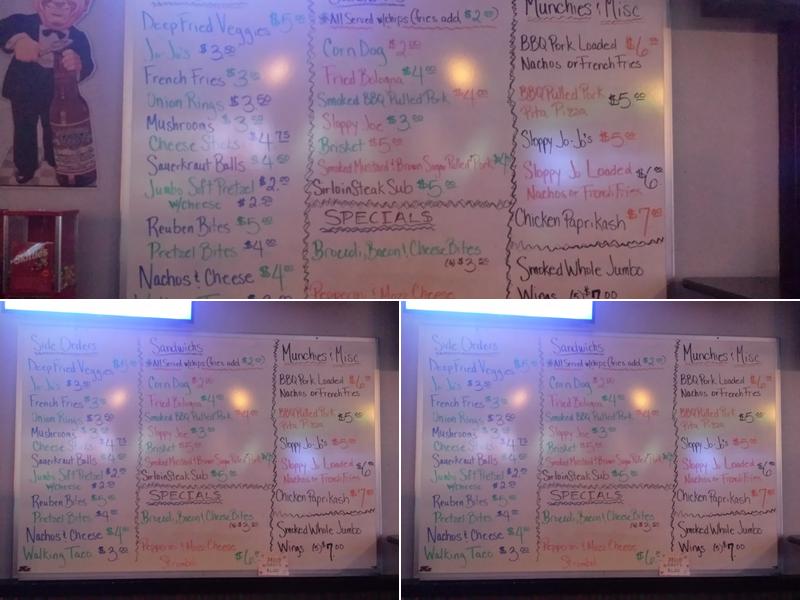 Deep Fried Veggies $5.00
Jo-Jo's $3.50
French Fries $3.00
Onion Rings $3.50
Mushrooms $3.50
Cheese Sticks $4.75
Sauerkraut Balls $4.50
Jumbo Soft Pretzel $2.00
w/cheese $2.50
Reuben Bites $5.00
Pretzel Bites $4.00
Nachos & Cheese $4.00
*All Served w/chips (fries add $2.00)
Corn Dog $2.00
Fried Bologna $4.00
Smoked BBQ Pulled Pork $4.00
Sloppy Joe $3.00
Brisket $5.00
Smoked Mustard & Brown Sugar Pulled Pork
Sirloin Steak Sub $5.00
SPECIALS
Broccoli, Bacon & Cheese Bites
(6) $3.25
Pepperoni & Mozz Cheese
Munchies & Misc
BBQ Pork Loaded $6.00
Nachos or French Fries
BBQ Pulled Pork $5.00
Pita Pizza
Sloppy Jo-Jo's $5.00
Sloppy Jo Loaded $6.00
Nachos or French Fries
Chicken Paprikash $7.00
Smoked Whole Jumbo
Wings (5) $7.00
Side Orders
Deep Fried Veggies $5.00
Jo-Jo's $3.50
French Fries $3.00
Onion Rings $3.50
Mushrooms $3.50
Cheese Sticks $4.75
Sauerkraut Balls $4.50
Jumbo Soft Pretzel $2.00
w/cheese $2.50
Reuben Bites $5.00
Pretzel Bites $4.00
Nachos & Cheese $4.00
Walking Taco $3.00
Sandwichs
*All Served w/chips (fries add $2.00)
Corn Dog $2.00
Fried Bologna $4.00
Smoked BBQ Pulled Pork $4.00
Sloppy Joe $3.00
Brisket $5.00
Smoked Mustard & Brown Sugar Pulled Pork
Sirloin Steak Sub $5.00
SPECIALS
Broccoli, Bacon & Cheese Bites
(6) $3.25
Pepperoni & Mozz Cheese
Stromboli
Munchies & Misc
BBQ Pork Loaded $6.00
Nachos or French Fries
BBQ Pulled Pork $5.00
Pita Pizza
Sloppy Jo-Jo's $5.00
Sloppy Jo Loaded $6.00
Nachos or French Fries
Chicken Paprikash $7.00
Smoked Whole Jumbo
Wings (5) $7.00
Side Orders
Deep Fried Veggies $5.00
Jo-Jo's $3.50
French Fries $3.00
Onion Rings $3.50
Mushrooms $3.50
Cheese Sticks $4.75
Sauerkraut Balls $4.50
Jumbo Soft Pretzel $2.00
w/cheese $2.50
Reuben Bites $5.00
Pretzel Bites $4.00
Nachos & Cheese $4.00
Walking Taco $3.00
Sandwichs
*All Served w/chips (fries add $2.00)
Corn Dog $2.00
Fried Bologna $4.00
Smoked BBQ Pulled Pork $4.00
Sloppy Joe $3.00
Brisket $5.00
Smoked Mustard & Brown Sugar Pulled Pork
Sirloin Steak Sub $5.00
SPECIALS
Broccoli, Bacon & Cheese Bites
(6) $3.25
Pepperoni & Mozz Cheese
Stromboli
Munchies & Misc
BBQ Pork Loaded $6.00
Nachos or French Fries
BBQ Pulled Pork $5.00
Pita Pizza
Sloppy Jo-Jo's $5.00
Sloppy Jo Loaded $6.00
Nachos or French Fries
Chicken Paprikash $7.00
Smoked Whole Jumbo
Wings (5) $7.00